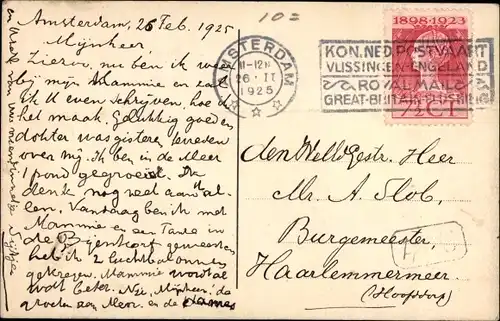 Amsterdam, 26 Feb. 1925
Mijnheer,
Ziezoo, nu ben ik weer
bij mijn Mammie en zal
ik U even schrijven, hoe ik
het maak. Gelukkig goed en
dokter was gisteren tevreden
over mij. Ik ben in de Meer
1 pond gegroeid. Ik
denk nog veel aan U al-
len. Vandaag ben ik met
Mammie en een Tante in
de Bijenkorf geweest en
heb ik 2 luchtballonnen
gekregen. Mammie wordt al
wat beter. Nu, Mijnheer, de
groeten aan Mevr. en de dames
10=
AMSTERDAM
11-12V
26 II
1925
KON. NED POSTVAART
VLISSINGEN-ENGELAND
ROYAL MAIL
GREAT-BRITAIN-FLUSHING
1898-1923
7½ CT
den WelEd.Gestr. Heer
Mr. A. Slob,
Burgemeester,
Haarlemmermeer
(Hoofddorp)